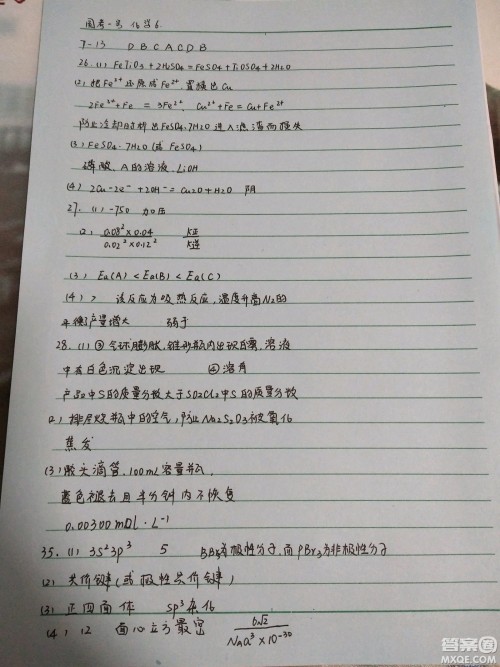 国考一号 化学6.
7-13 D B C A C D B
26.(1) FeTiO3 + 2H2SO4 = FeSO4 + TiOSO4 + 2H2O
(2) 把Fe3+还原成Fe2+, 置换出Cu
2Fe3+ + Fe = 3Fe2+, Cu2+ + Fe = Cu + Fe2+
防止冷却时析出FeSO4·7H2O进入滤渣而损失
(3) FeSO4·7H2O (或FeSO4)
磷酸、A的溶液、LiOH
(4) 2Cu - 2e- + 2OH- = Cu2O + H2O 阴
27. (1) -750 加压
(2) 0.08²×0.04 / 0.02²×0.12² k正/k逆
(3) Ea(A) < Ea(B) < Ea(C)
(4) > 该反应为吸热反应, 温度升高N2的
平衡产量增大 弱于
28. (1) ③ 气球膨胀、锥形瓶内出现白雾, 溶液
中有白色沉淀出现 ④ 溶有
产品中S的质量分数大于SO2Cl2中S的质量分数
(2) 排尽烧瓶中的空气, 防止Na2S2O3被氧化
蒸发
(3) 胶头滴管、100mL容量瓶
蓝色褪去且半分钟内不恢复
0.00300 mol·L-1
35. (1) 3s²3p³ 5 极性分子, 而PBr3为非极性分子
(2) 共价键 (或极性共价键)
(3) 正四面体 sp³杂化
(4) 12 面心立方最密 6√2 / NAa³×10-30
答案圈
MXQE.COM